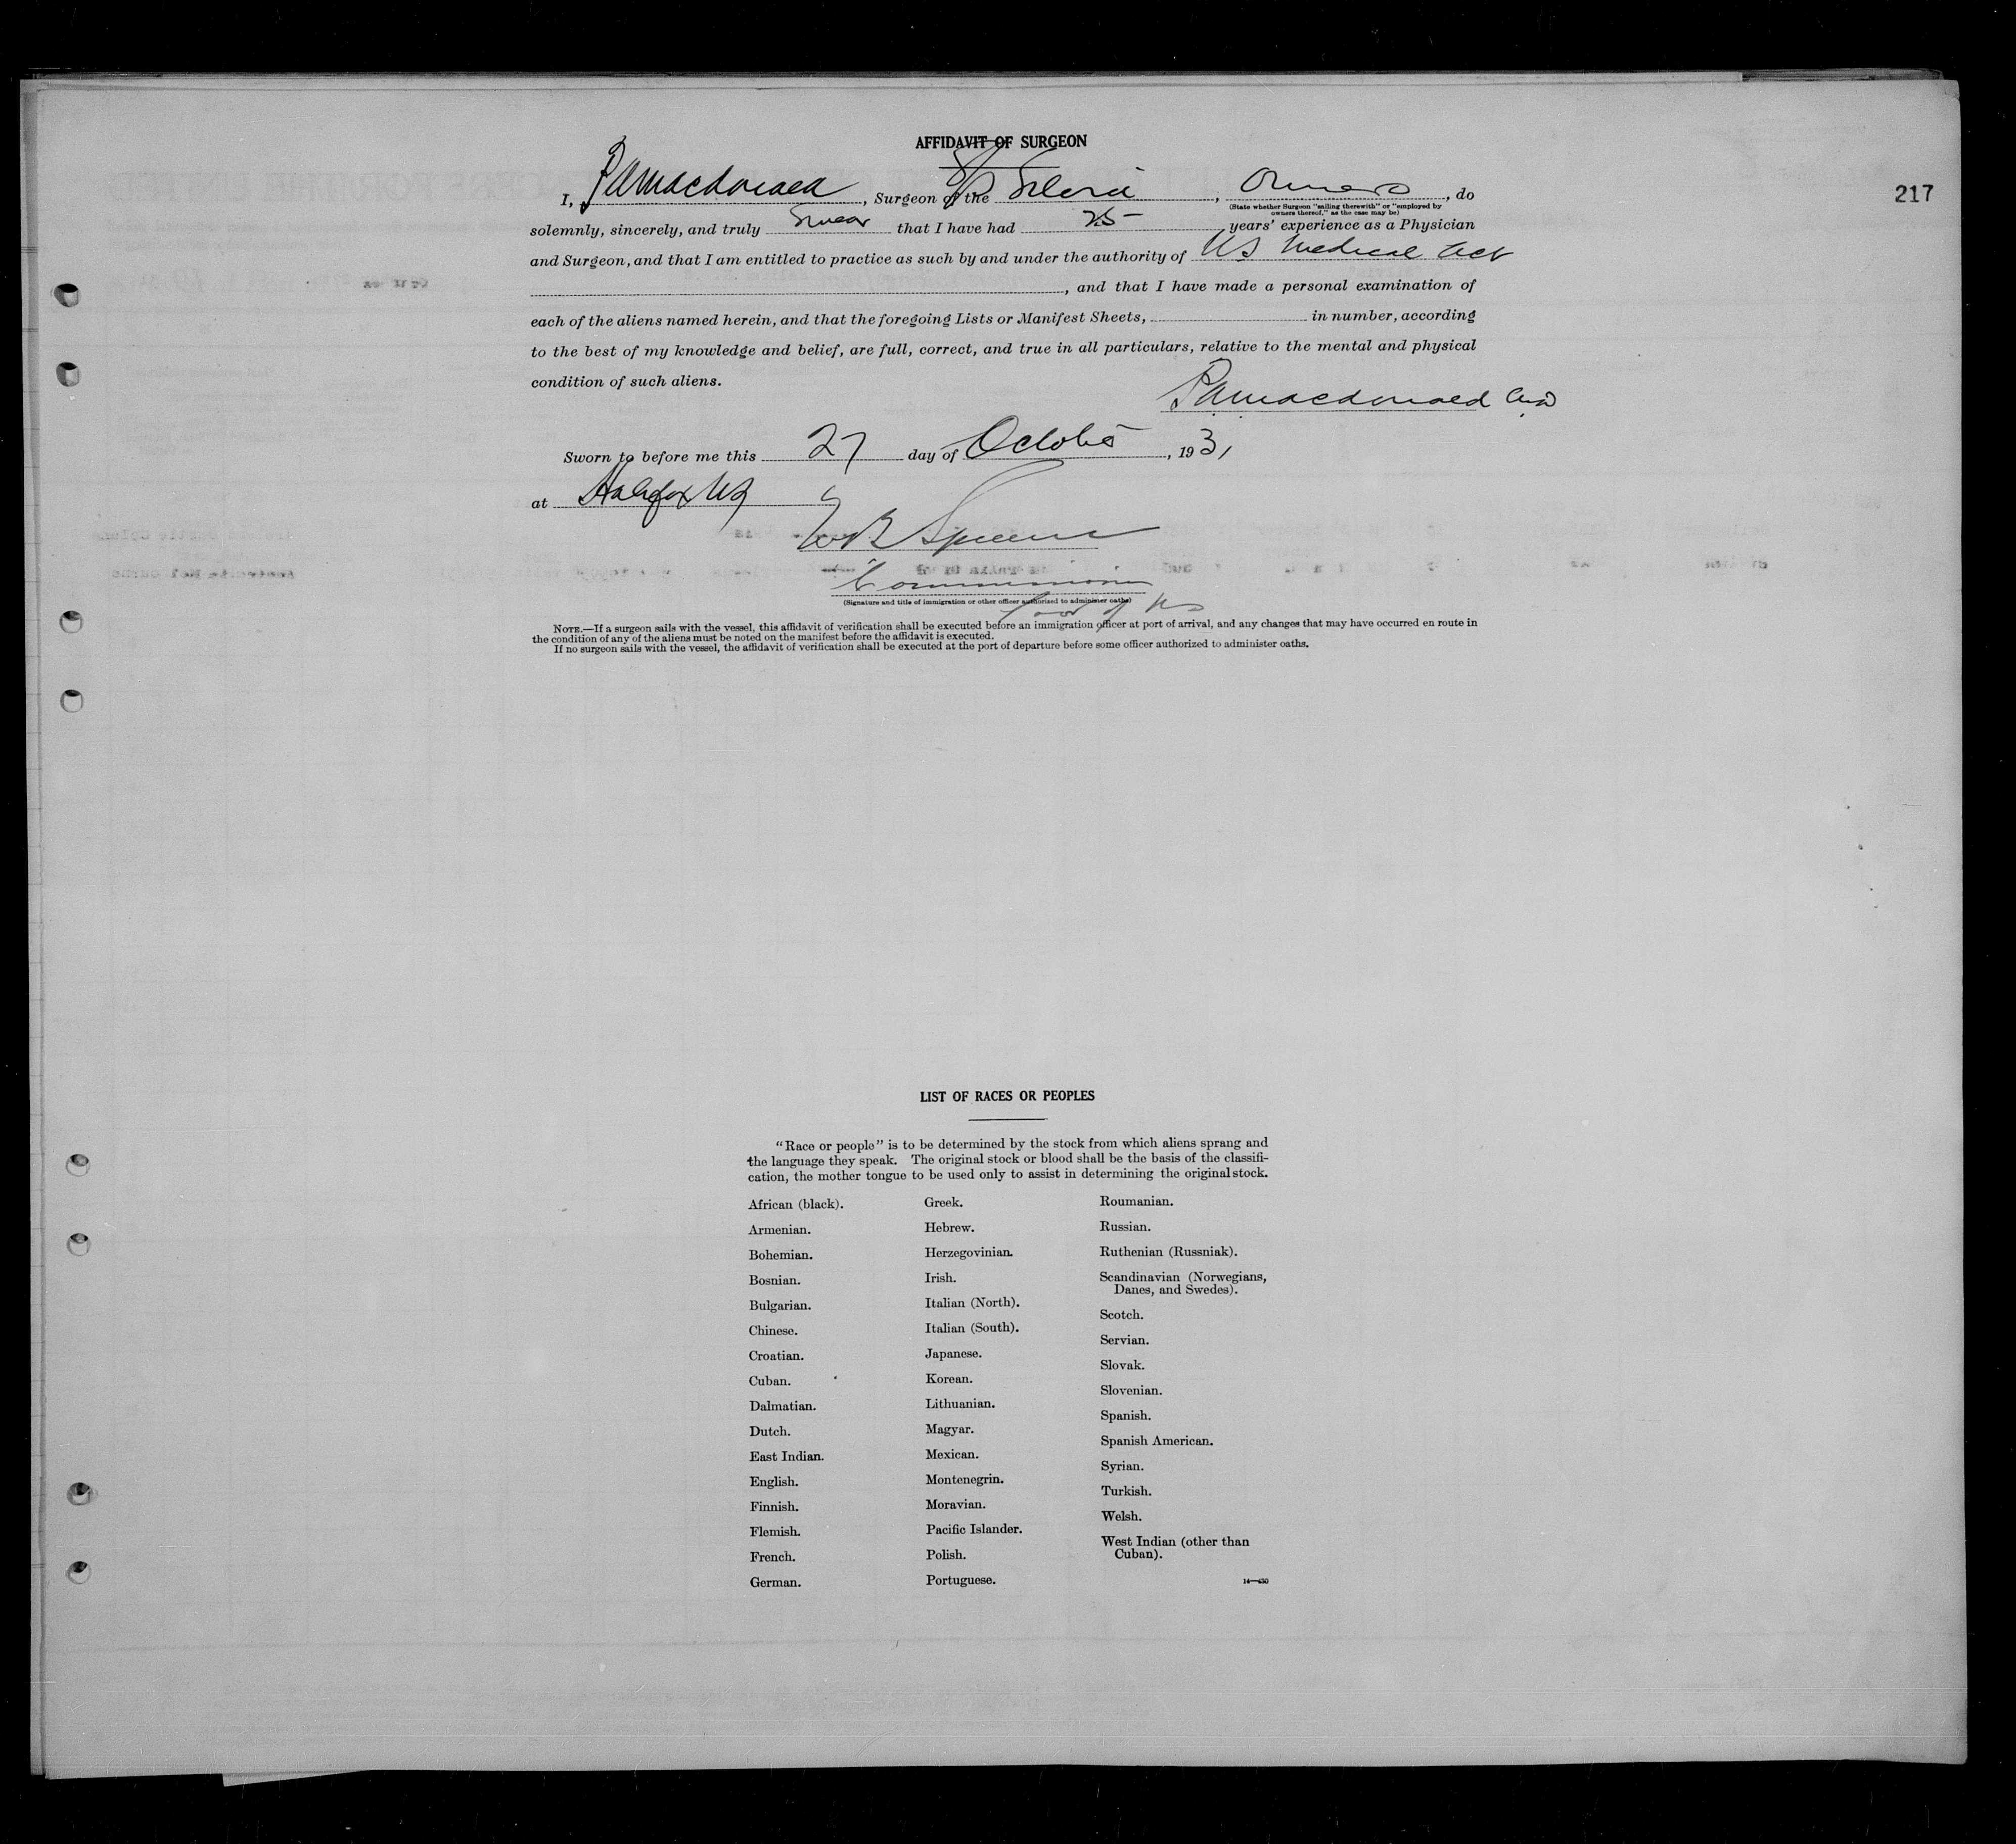 AFFIDAVIT OF SURGEON
217
I, P A Macdonald, Surgeon of the S/S Silvia, Owners, do
(State whether Surgeon "sailing therewith" or "employed by
owners thereof," as the case may be)
solemnly, sincerely, and truly Swear that I have had 25 years' experience as a Physician
and Surgeon, and that I am entitled to practice as such by and under the authority of NS Medical Act
, and that I have made a personal examination of
each of the aliens named herein, and that the foregoing Lists or Manifest Sheets, in number, according
to the best of my knowledge and belief, are full, correct, and true in all particulars, relative to the mental and physical
condition of such aliens.
P A Macdonald
Sworn to before me this 27 day of October, 1931
at Halifax NS
Commissioner
(Signature and title of immigration or other officer authorized to administer oaths)
NOTE.—If a surgeon sails with the vessel, this affidavit of verification shall be executed before an immigration officer at port of arrival, and any changes that may have occurred en route in
the condition of any of the aliens must be noted on the manifest before the affidavit is executed.
If no surgeon sails with the vessel, the affidavit of verification shall be executed at the port of departure before some officer authorized to administer oaths.
LIST OF RACES OR PEOPLES
"Race or people" is to be determined by the stock from which aliens sprang and
the language they speak. The original stock or blood shall be the basis of the classifi-
cation, the mother tongue to be used only to assist in determining the original stock.
African (black).
Armenian.
Bohemian.
Bosnian.
Bulgarian.
Chinese.
Croatian.
Cuban.
Dalmatian.
Dutch.
East Indian.
English.
Finnish.
Flemish.
French.
German.
Greek.
Hebrew.
Herzegovinian.
Irish.
Italian (North).
Italian (South).
Japanese.
Korean.
Lithuanian.
Magyar.
Mexican.
Montenegrin.
Moravian.
Pacific Islander.
Polish.
Portuguese.
Roumanian.
Russian.
Ruthenian (Russniak).
Scandinavian (Norwegians,
Danes, and Swedes).
Scotch.
Servian.
Slovak.
Slovenian.
Spanish.
Spanish American.
Syrian.
Turkish.
Welsh.
West Indian (other than
Cuban).